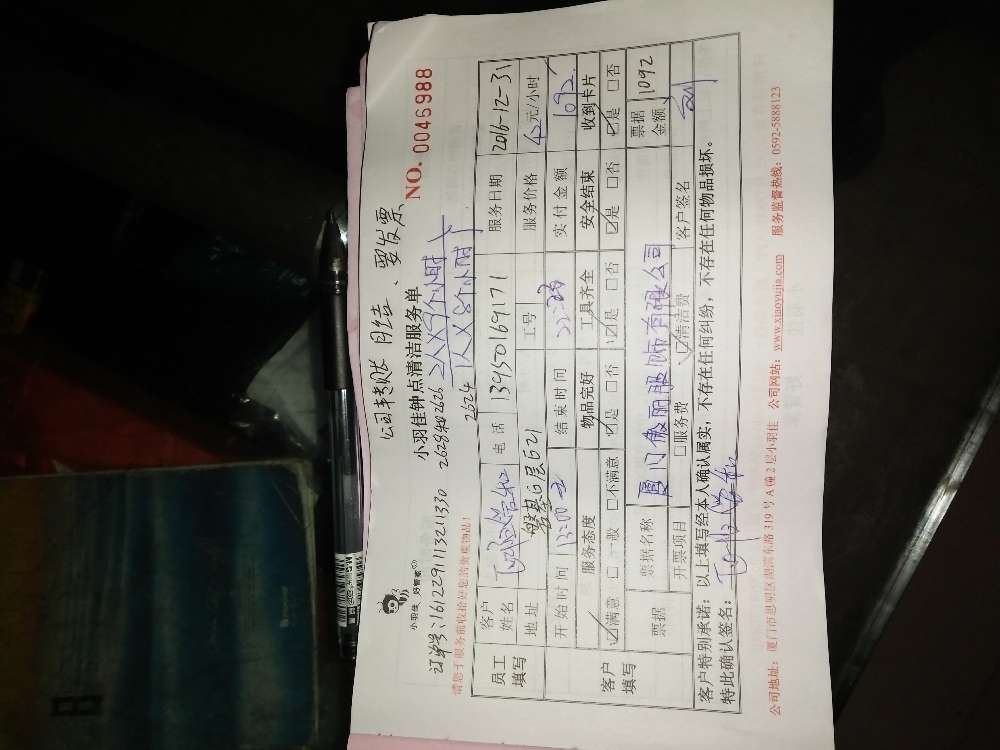 月结、要发票
小羽佳钟点清洁服务单
NO. 0046988
小羽佳 好管家
订单号:1612291113211330
2人×9个小时
2624 1人×8个小时
请您于服务前收拾好您的贵重物品!
员工填写
客户姓名
电话 13950169171
服务日期 2016-12-31
地址 磐基6层621
工号
服务价格 42元/小时
开始时间 13:00
结束时间 22:00
实付金额 1092
客户填写
服务态度 物品完好 工具齐全 安全结束 收到卡片
☑满意 □一般 □不满意 ☑是 □否 ☑是 □否 ☑是 □否 ☑是 □否
票据
票据名称 厦门傲丽服饰有限公司
票据金额 1092
开票项目 □服务费 ☑清洁费
客户签名
客户特别承诺:以上填写经本人确认属实,不存在任何纠纷,不存在任何物品损坏。
特此确认签名:
公司地址:厦门市思明区湖滨东路319号A幢2层小羽佳 公司网站:www.xiaoyujia.com 服务监督热线:0592-5888123